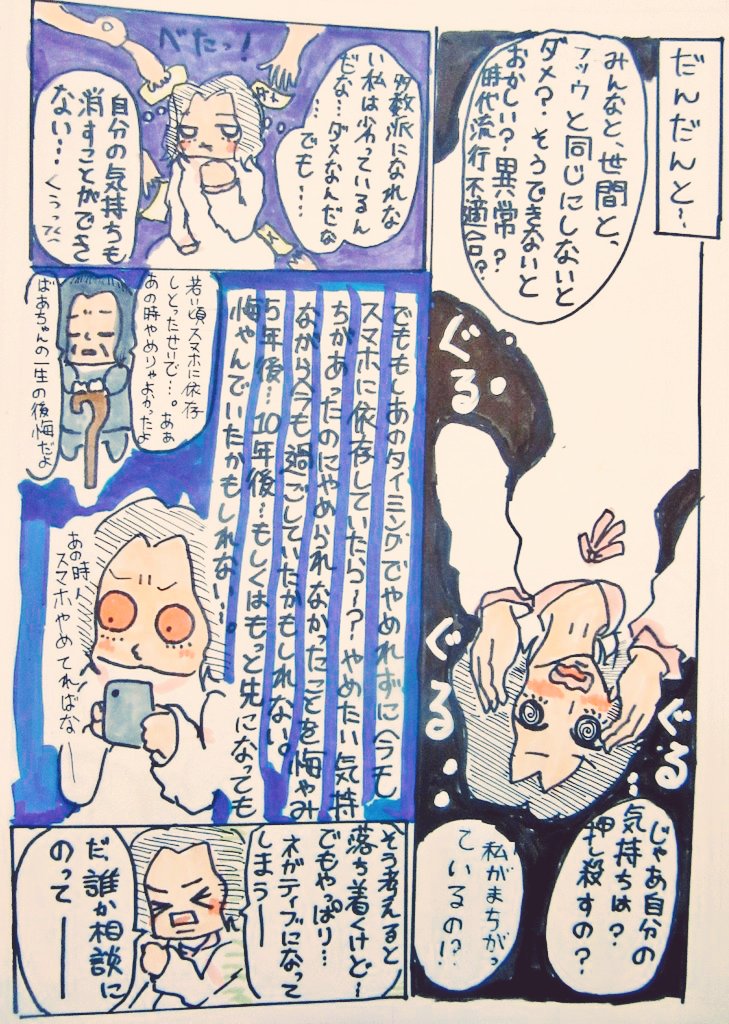 だんだんと〜
みんなと、世間と、
フツウと同じにしないと
ダメ？そうできないと
おかしい？異常？
時代流行不適合？
ぐる
ぐる
ぐる
じゃあ自分の
気持ちは？
押し殺すの？
私がまちがっ
ているの！？
べたっ！
多数派になれな
い私は劣っているん
だな…ダメなんだな
…でも…
自分の気持ちも
消すことができ
ない…
でももしあのタイミングでやめれずに今も
スマホに依存していたら〜？やめたい気持
ちがあったのにやめられなかったことを悔やみ
ながら今も過ごしていたかもしれない。
5年後…10年後…もしくはもっと先になっても
悔やんでいたかもしれない…。
若い頃スマホに依存
しとったせいで…。ああ
あの時やめりゃよかったよ
ばあちゃんの一生の後悔だよ
あの時
スマホやめてればな〜
そう考えると
落ち着くけど〜
でもやっぱり…
ネガティブになって
しまうー
だ、誰か相談に
のってーー